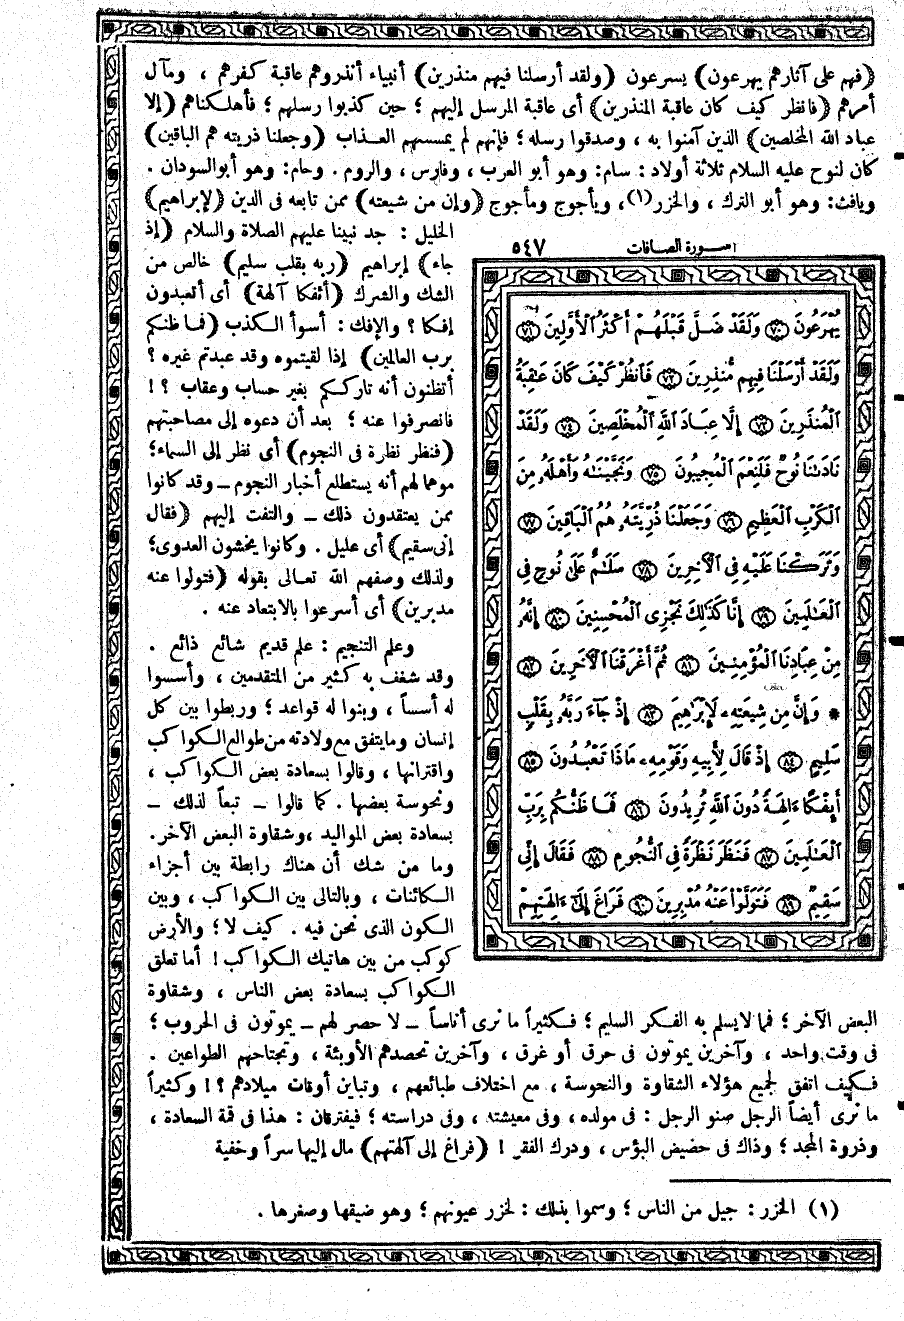 (فهم على آثارهم يهرعون) يسرعون (ولقد أرسلنا فيهم منذرين) أنبياء أنذروهم عاقبة كفرهم ، ومآل
أمرهم (فانظر كيف كان عاقبة المنذرين) أى عاقبة المرسل إليهم ؛ حين كذبوا رسلهم ؛ فأهلكناهم (إلا
عباد الله المخلصين) الذين آمنوا به ، وصدقوا رسله ؛ فإنهم لم يمسسهم العذاب (وجعلنا ذريته هم الباقين)
كان لنوح عليه السلام ثلاثة أولاد : سام: وهو أبو العرب ، وفارس ، والروم . وحام: وهو أبو السودان .
ويافث: وهو أبو الترك ، والخزر(١)، ويأجوج ومأجوج (وإن من شيعته) ممن تابعه فى الدين (لإبراهيم)
الخليل : جد نبينا عليهم الصلاة والسلام (إذ
جاء) إبراهيم (ربه بقلب سليم) خالص من
الشك والشرك (أئفكا آلهة) أى أتعبدون
إفكا ؟ والإفك : أسوأ الكذب (فما ظنكم
برب العالمين) إذا لقيتموه وقد عبدتم غيره ؟
أتظنون أنه تارككم بغير حساب وعقاب ؟!
فانصرفوا عنه ؛ بعد أن دعوه إلى مصاحبتهم
(فنظر نظرة فى النجوم) أى نظر إلى السماء؛
موهما لهم أنه يستطلع أخبار النجوم – وقد كانوا
ممن يعتقدون ذلك – والتفت إليهم (فقال
إنى سقيم) أى عليل . وكانوا يخشون العدوى؛
ولذلك وصفهم الله تعالى بقوله (فتولوا عنه
مدبرين) أى أسرعوا بالابتعاد عنه .
وعلم التنجيم : علم قديم شائع ذائع .
وقد شغف به كثير من المتقدمين ، وأسسوا
له أسساً ، وبنوا له قواعد ؛ وربطوا بين كل
إنسان وما يتفق مع ولادته من طوالع الكواكب
واقتراتها ، وقالوا بسعادة بعض الكواكب ،
ونحوسة بعضها . كما قالوا – تبعاً لذلك –
بسعادة بعض المواليد ، وشقاوة البعض الآخر.
وما من شك أن هناك رابطة بين أجزاء
الكائنات ، وبالتالى بين الكواكب ، وبين
الكون الذى نحن فيه . كيف لا ؛ والأرض
كوكب من بين هاتيك الكواكب ! أما تعلق
الكواكب بسعادة بعض الناس ، وشقاوة
سورة الصافات ٥٤٧
يُهْرَعُونَ ٧٠ وَلَقَدْ ضَلَّ قَبْلَهُمْ أَكْثَرُ الْأَوَّلِينَ ٧١
وَلَقَدْ أَرْسَلْنَا فِيهِم مُّنذِرِينَ ٧٢ فَانظُرْ كَيْفَ كَانَ عَٰقِبَةُ
الْمُنذَرِينَ ٧٣ إِلَّا عِبَادَ اللَّهِ الْمُخْلَصِينَ ٧٤ وَلَقَدْ
نَادَىٰنَا نُوحٌ فَلَنِعْمَ الْمُجِيبُونَ ٧٥ وَنَجَّيْنَٰهُ وَأَهْلَهُۥ مِنَ
الْكَرْبِ الْعَظِيمِ ٧٦ وَجَعَلْنَا ذُرِّيَّتَهُۥ هُمُ الْبَاقِينَ ٧٧
وَتَرَكْنَا عَلَيْهِ فِى الْآخِرِينَ ٧٨ سَلَٰمٌ عَلَىٰ نُوحٍ فِى
الْعَٰلَمِينَ ٧٩ إِنَّا كَذَٰلِكَ نَجْزِى الْمُحْسِنِينَ ٨٠ إِنَّهُۥ
مِنْ عِبَادِنَا الْمُؤْمِنِينَ ٨١ ثُمَّ أَغْرَقْنَا الْآخَرِينَ ٨٢
* وَإِنَّ مِن شِيعَتِهِۦ لَإِبْرَٰهِيمَ ٨٣ إِذْ جَآءَ رَبَّهُۥ بِقَلْبٍ
سَلِيمٍ ٨٤ إِذْ قَالَ لِأَبِيهِ وَقَوْمِهِۦ مَاذَا تَعْبُدُونَ ٨٥
أَئِفْكًا ءَالِهَةً دُونَ اللَّهِ تُرِيدُونَ ٨٦ فَمَا ظَنُّكُم بِرَبِّ
الْعَٰلَمِينَ ٨٧ فَنَظَرَ نَظْرَةً فِى النُّجُومِ ٨٨ فَقَالَ إِنِّى
سَقِيمٌ ٨٩ فَتَوَلَّوْا عَنْهُ مُدْبِرِينَ ٩٠ فَرَاغَ إِلَىٰ ءَالِهَتِهِمْ
البعض الآخر ؛ فما لا يسلم به الفكر السليم ؛ فكثيراً ما نرى أناساً – لا حصر لهم – يموتون فى الحروب ؛
فى وقت واحد ، وآخرين يموتون فى حرق أو غرق ، وآخرين تحصدهم الأوبئة ، وتجتاحهم الطواعين .
فكيف اتفق لجميع هؤلاء الشقاوة والنحوسة ، مع اختلاف طبائعهم ، وتباين أوقات ميلادهم ؟! وكثيراً
ما نرى أيضاً الرجل صنو الرجل : فى مولده ، وفى معيشته ، وفى دراسته ؛ فيفترقان : هذا فى قمة السعادة ،
وذروة المجد ؛ وذاك فى حضيض البؤس ، ودرك الفقر ! (فراغ إلى آلهتهم) مال إليها سراً وخفية
(١) الخزر : جيل من الناس ؛ وسموا بذلك : لخزر عيونهم ؛ وهو ضيقها وصغرها .